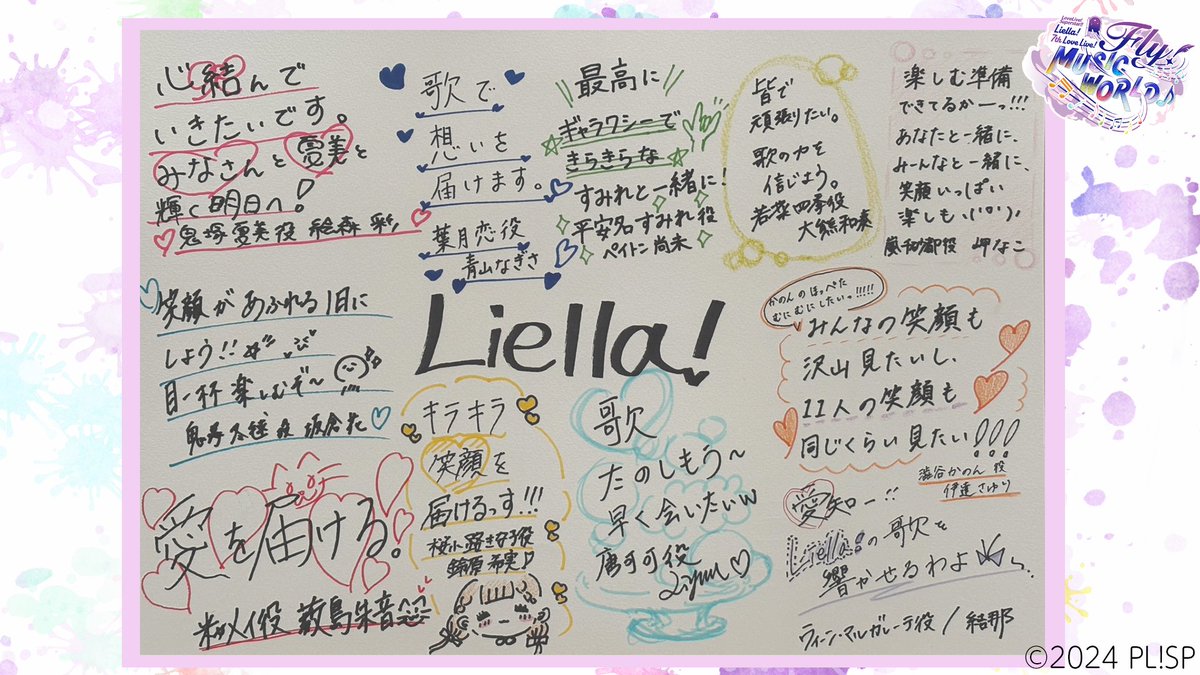 心結んで
いきたいです。
みなさんと夏美と
輝く明日へ!
鬼塚夏美役 絵森 彩
歌で
想いを
届けます。
葉月恋役
青山なぎさ
最高に
ギャラクシーで
きらきらな
すみれと一緒に!
平安名すみれ役
ペイトン尚未
皆で
頑張りたい。
歌の力を
信じよう。
若菜四季役
大熊和奏
楽しむ準備
できてるかーっ!!!
あなたと一緒に、
みーんなと一緒に、
笑顔いっぱい
楽しもい('▽')ﾉ
嵐千砂都役 岬なこ
LoveLive! Superstar!!
Liella!
7th LoveLive!
Fly!
MUSIC
WORLD♪
笑顔があふれる1日に
しよう!!
目一杯楽しむぞ~
鬼塚冬毬役 坂倉花
Liella!
かのんのほっぺた
むにむにしたいっ!!!!!
みんなの笑顔も
沢山見たいし、
11人の笑顔も
同じくらい見たい!!!
澁谷かのん役
伊達さゆり
愛を届ける。
米女メイ役 薮島朱音
キラキラ
笑顔を
届けるっす!!!
桜小路きな子役
鈴原希実♪
歌
たのしもう~
早く会いたいw
唐可可役
Liyuu♡
愛知ー!!
Liella!の歌を
響かせるわよ
ウィーン・マルガレーテ役/結那
©2024 PL!SP